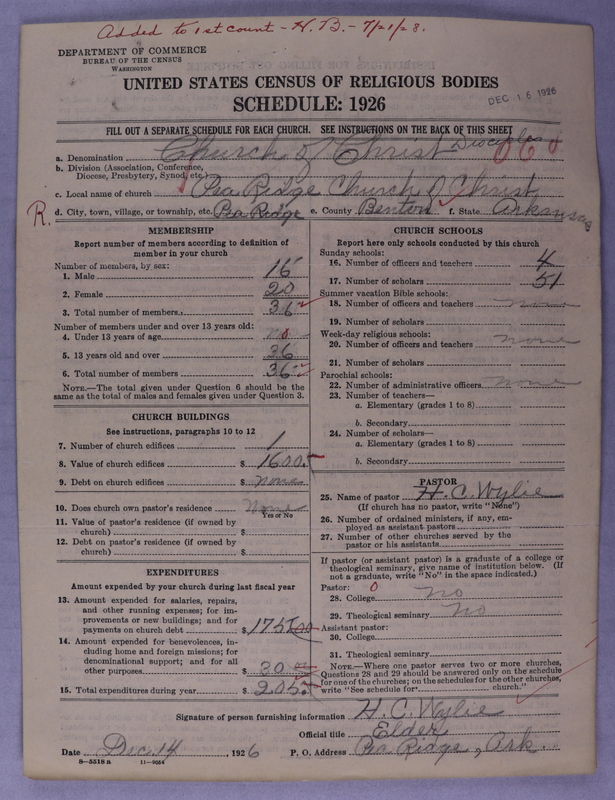 Added to 1st count - H.B. - 7/21/28.
DEPARTMENT OF COMMERCE
BUREAU OF THE CENSUS
WASHINGTON
UNITED STATES CENSUS OF RELIGIOUS BODIES
SCHEDULE: 1926
DEC 16 1926
FILL OUT A SEPARATE SCHEDULE FOR EACH CHURCH. SEE INSTRUCTIONS ON THE BACK OF THIS SHEET
a. Denomination Church of Christ Disciples
b. Division (Association, Conference, Diocese, Presbytery, Synod, etc.)
c. Local name of church Pea Ridge Church of Christ
R. d. City, town, village, or township, etc. Pea Ridge e. County Benton f. State Arkansas
MEMBERSHIP
Report number of members according to definition of
member in your church
Number of members, by sex:
1. Male 16
2. Female 20
3. Total number of members 36
Number of members under and over 13 years old:
4. Under 13 years of age no
5. 13 years old and over 36
6. Total number of members 36
NOTE.—The total given under Question 6 should be the
same as the total of males and females given under Question 3.
CHURCH BUILDINGS
See instructions, paragraphs 10 to 12
7. Number of church edifices 1
8. Value of church edifices $ 1600.
9. Debt on church edifices $ none
10. Does church own pastor's residence None
Yes or No
11. Value of pastor's residence (if owned by
church) $
12. Debt on pastor's residence (if owned by
church) $
EXPENDITURES
Amount expended by your church during last fiscal year
13. Amount expended for salaries, repairs,
and other running expenses; for im-
provements or new buildings; and for
payments on church debt $ 175.00
14. Amount expended for benevolences, in-
cluding home and foreign missions; for
denominational support; and for all
other purposes $ 30.00
15. Total expenditures during year $ 205.
CHURCH SCHOOLS
Report here only schools conducted by this church
Sunday schools:
16. Number of officers and teachers 4
17. Number of scholars 51
Summer vacation Bible schools:
18. Number of officers and teachers none
19. Number of scholars
Week-day religious schools:
20. Number of officers and teachers none
21. Number of scholars
Parochial schools:
22. Number of administrative officers none
23. Number of teachers—
a. Elementary (grades 1 to 8)
b. Secondary
24. Number of scholars—
a. Elementary (grades 1 to 8)
b. Secondary
PASTOR
25. Name of pastor H. C. Wylie
(If church has no pastor, write "None")
26. Number of ordained ministers, if any, em-
ployed as assistant pastors
27. Number of other churches served by the
pastor or his assistants
If pastor (or assistant pastor) is a graduate of a college or
theological seminary, give name of institution below. (If
not a graduate, write "No" in the space indicated.)
Pastor: 0
28. College no
29. Theological seminary no
Assistant pastor:
30. College
31. Theological seminary
NOTE.—Where one pastor serves two or more churches,
Questions 28 and 29 should be answered only on the schedule
for one of the churches; on the schedules for the other churches,
write "See schedule for church."
Signature of person furnishing information H. C. Wylie
Official title Elder
Date Dec. 14 1926 P. O. Address Pea Ridge, Ark.
8—5518 a 11—9664